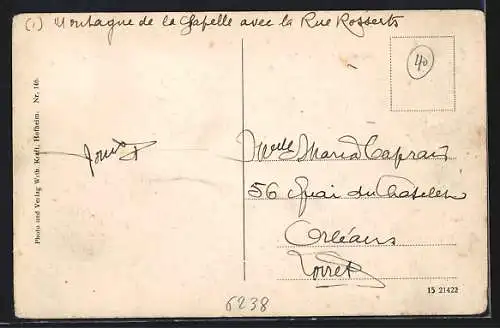 (1) Montagne de la Chapelle avec la Rue Rosserts
40
Photo und Verlag Wilh. Kraft, Hofheim. Nr. 146.
Melle Maria Caprais
56 Quai du Chatelet
Orléans
Loiret
15 21422
6238